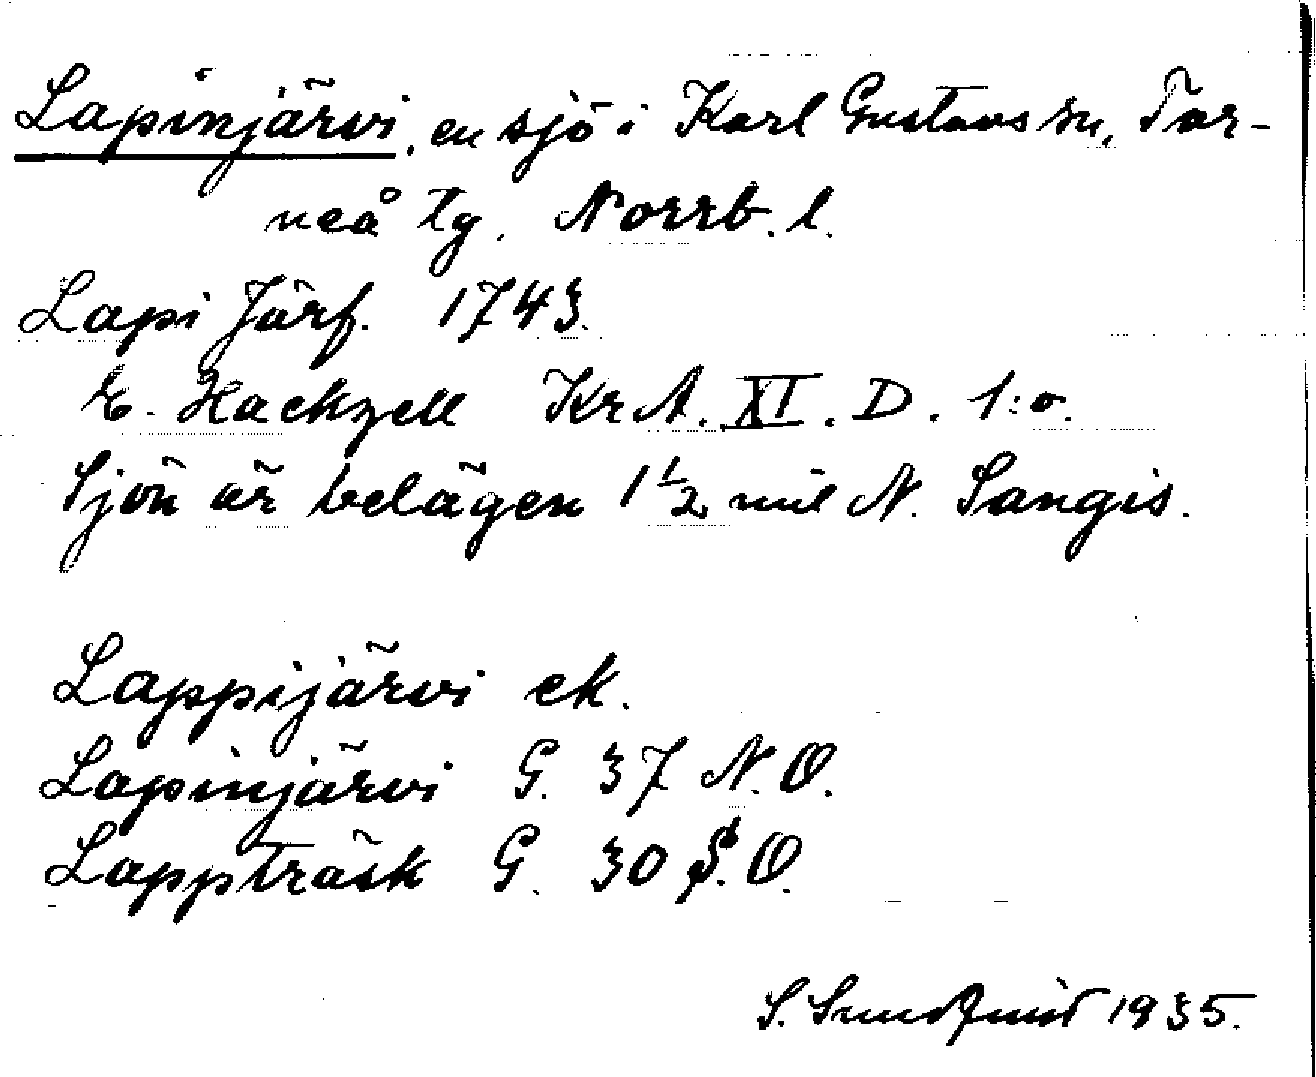 Lapinjärvi, en sjö i Karl Gustavs sn, Tor-
neå tg. Norrb. l.
Lapi Järf. 1743.
E. Hackzell KrA. XI. D. 1:o.
Sjön är belägen 1 1/2 mil N. Sangis.
Lappijärvi ek.
Lapinjärvi G. 37 N.O.
Lappträsk G. 30 S.O.
S. Sundquist 1935.